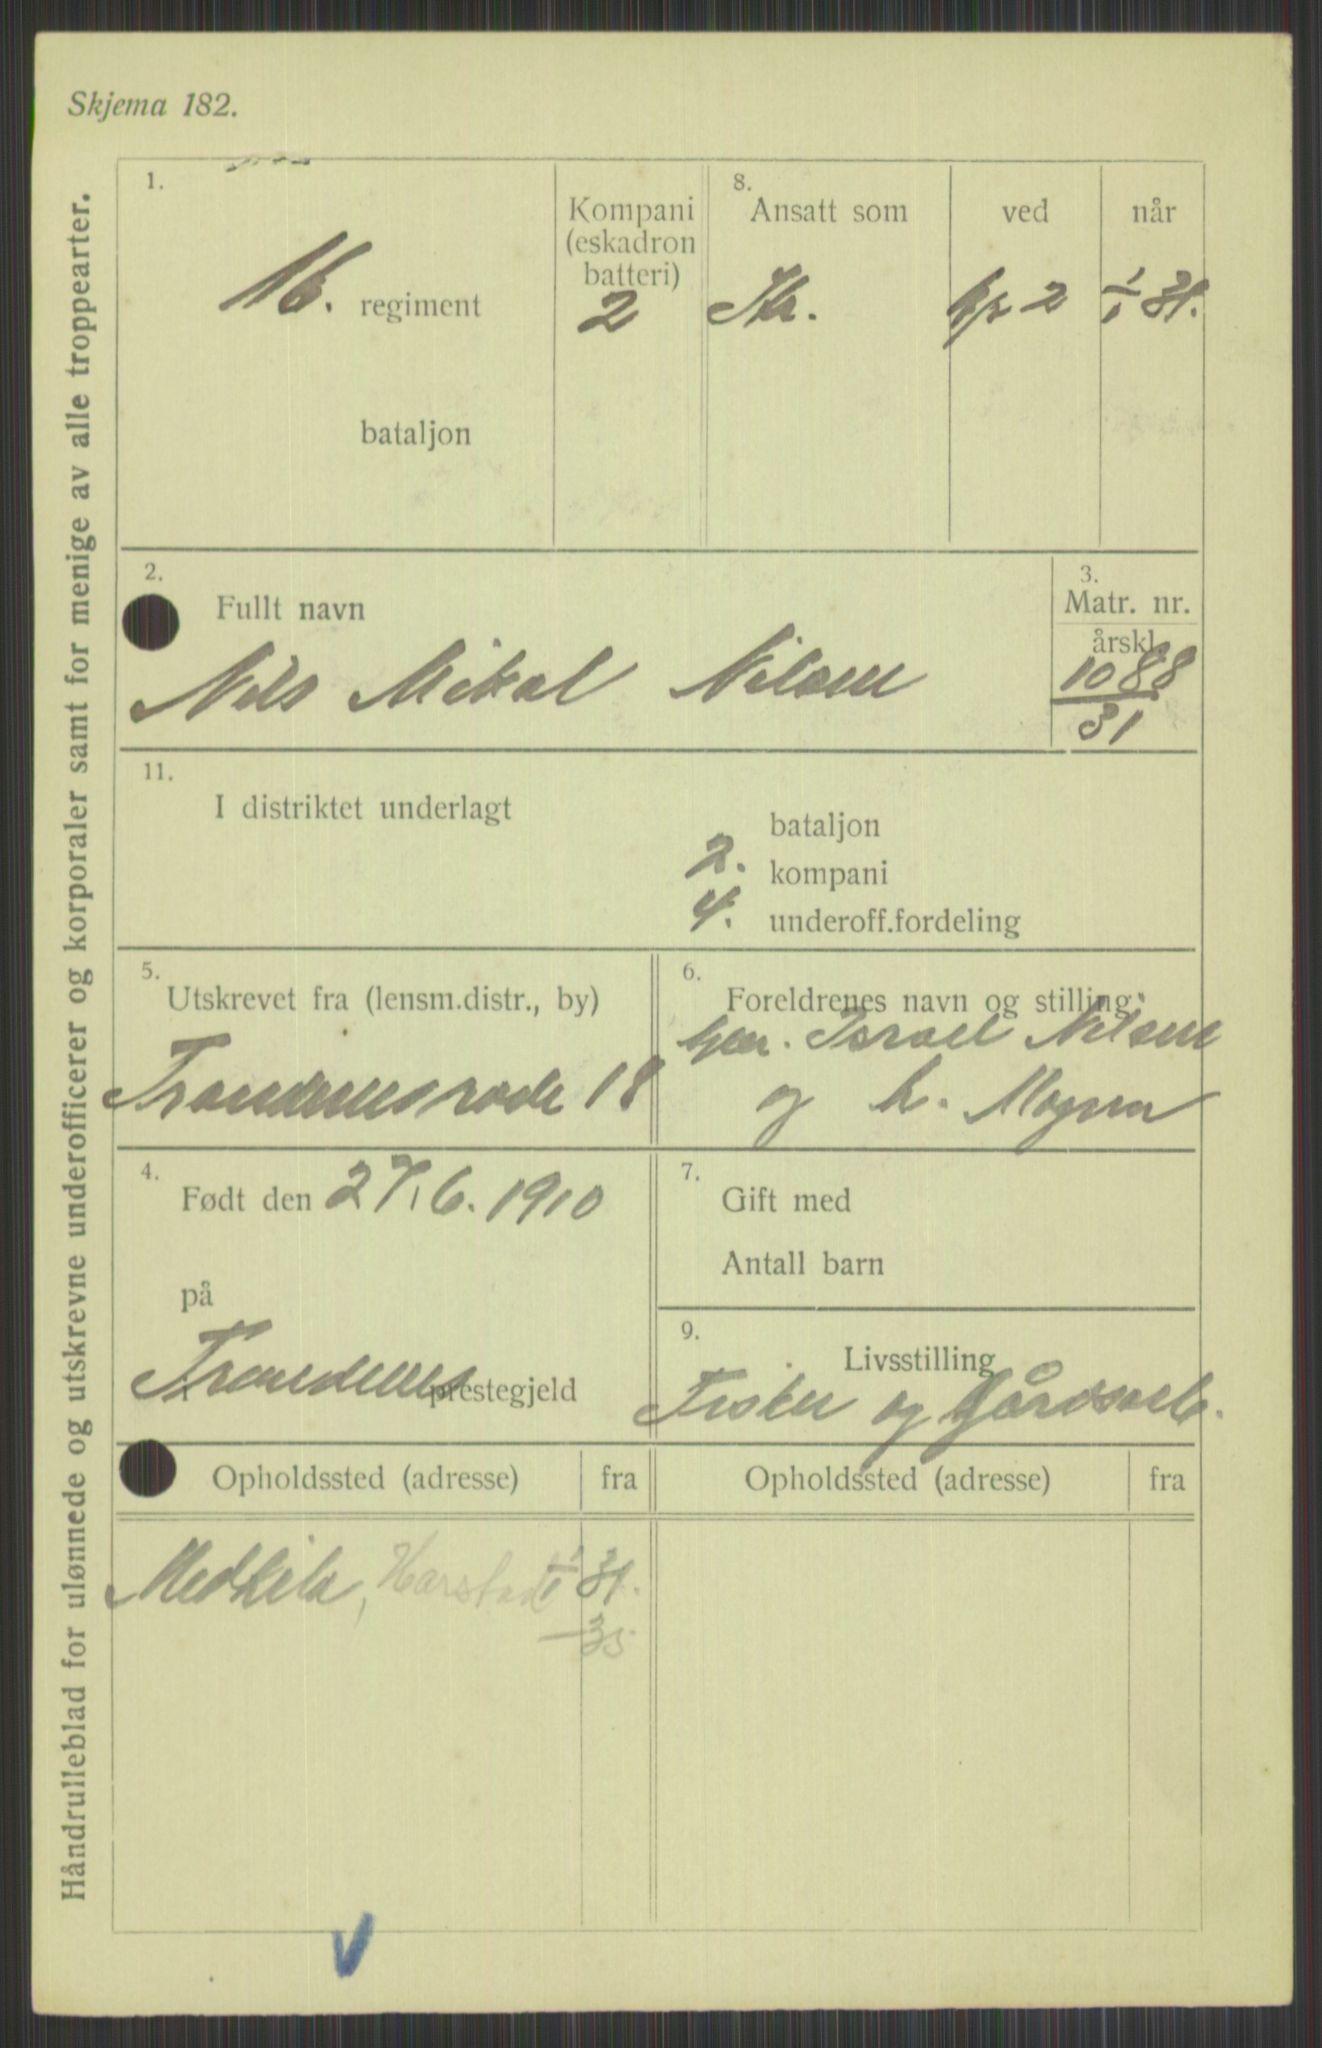 Skjema 182.
Håndrulleblad for ulønnede og utskrevne underofficerer og korporaler samt for menige av alle troppearter.
1.
16. regiment
bataljon
Kompani
(eskadron
batteri)
2
8.
Ansatt som
ved
når
Kp 2
1/1 31.
2.
Fullt navn
Nils Mikal Nilsen
3.
Matr. nr.
årskl.
1088
31
11.
I distriktet underlagt
bataljon
2. kompani
4. underoff.fordeling
5.
Utskrevet fra (lensm.distr., by)
Trondenes rode 18
6.
Foreldrenes navn og stilling:
Israel Nilsen
og h. Magna
4.
Født den 27.6.1910
på
i Trondenes prestegjeld
7.
Gift med
Antall barn
9.
Livsstilling
Fisker og Gårdsarb.
Opholdssted (adresse)
fra
Opholdssted (adresse)
fra
Medkila, Harstad 1/1 31.
— 35